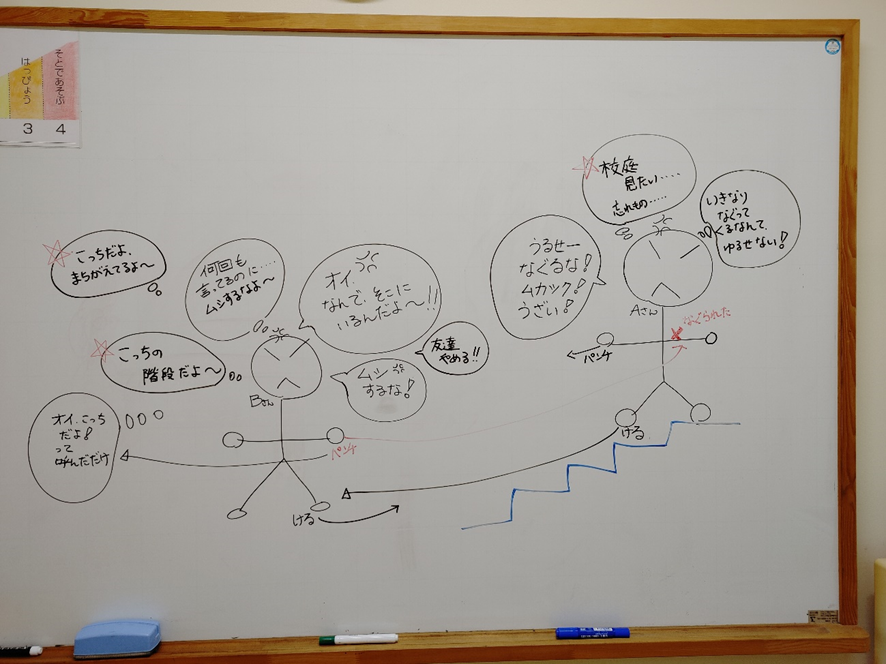 そとであそぶ
はっぴょう
3 4
校庭
見たい‥‥
忘れもの‥‥
いきなり
なぐって
くるなんて、
ゆるせない!
うるせー
なぐるな!
ムカック!
うざい!
Aさん
なぐられた
パンチ
ける
こっちだよ、
まちがえてるよ〜
何回も
言ってるのに‥‥
ムシするなよ〜
オイ、
なんで、そこに
いるんだよ〜!!
こっちの
階段だよ〜
友達
やめる!!
ムシ
するな!
Bさん
オイ、こっち
だよ!
って
呼んだだけ
パンチ
ける